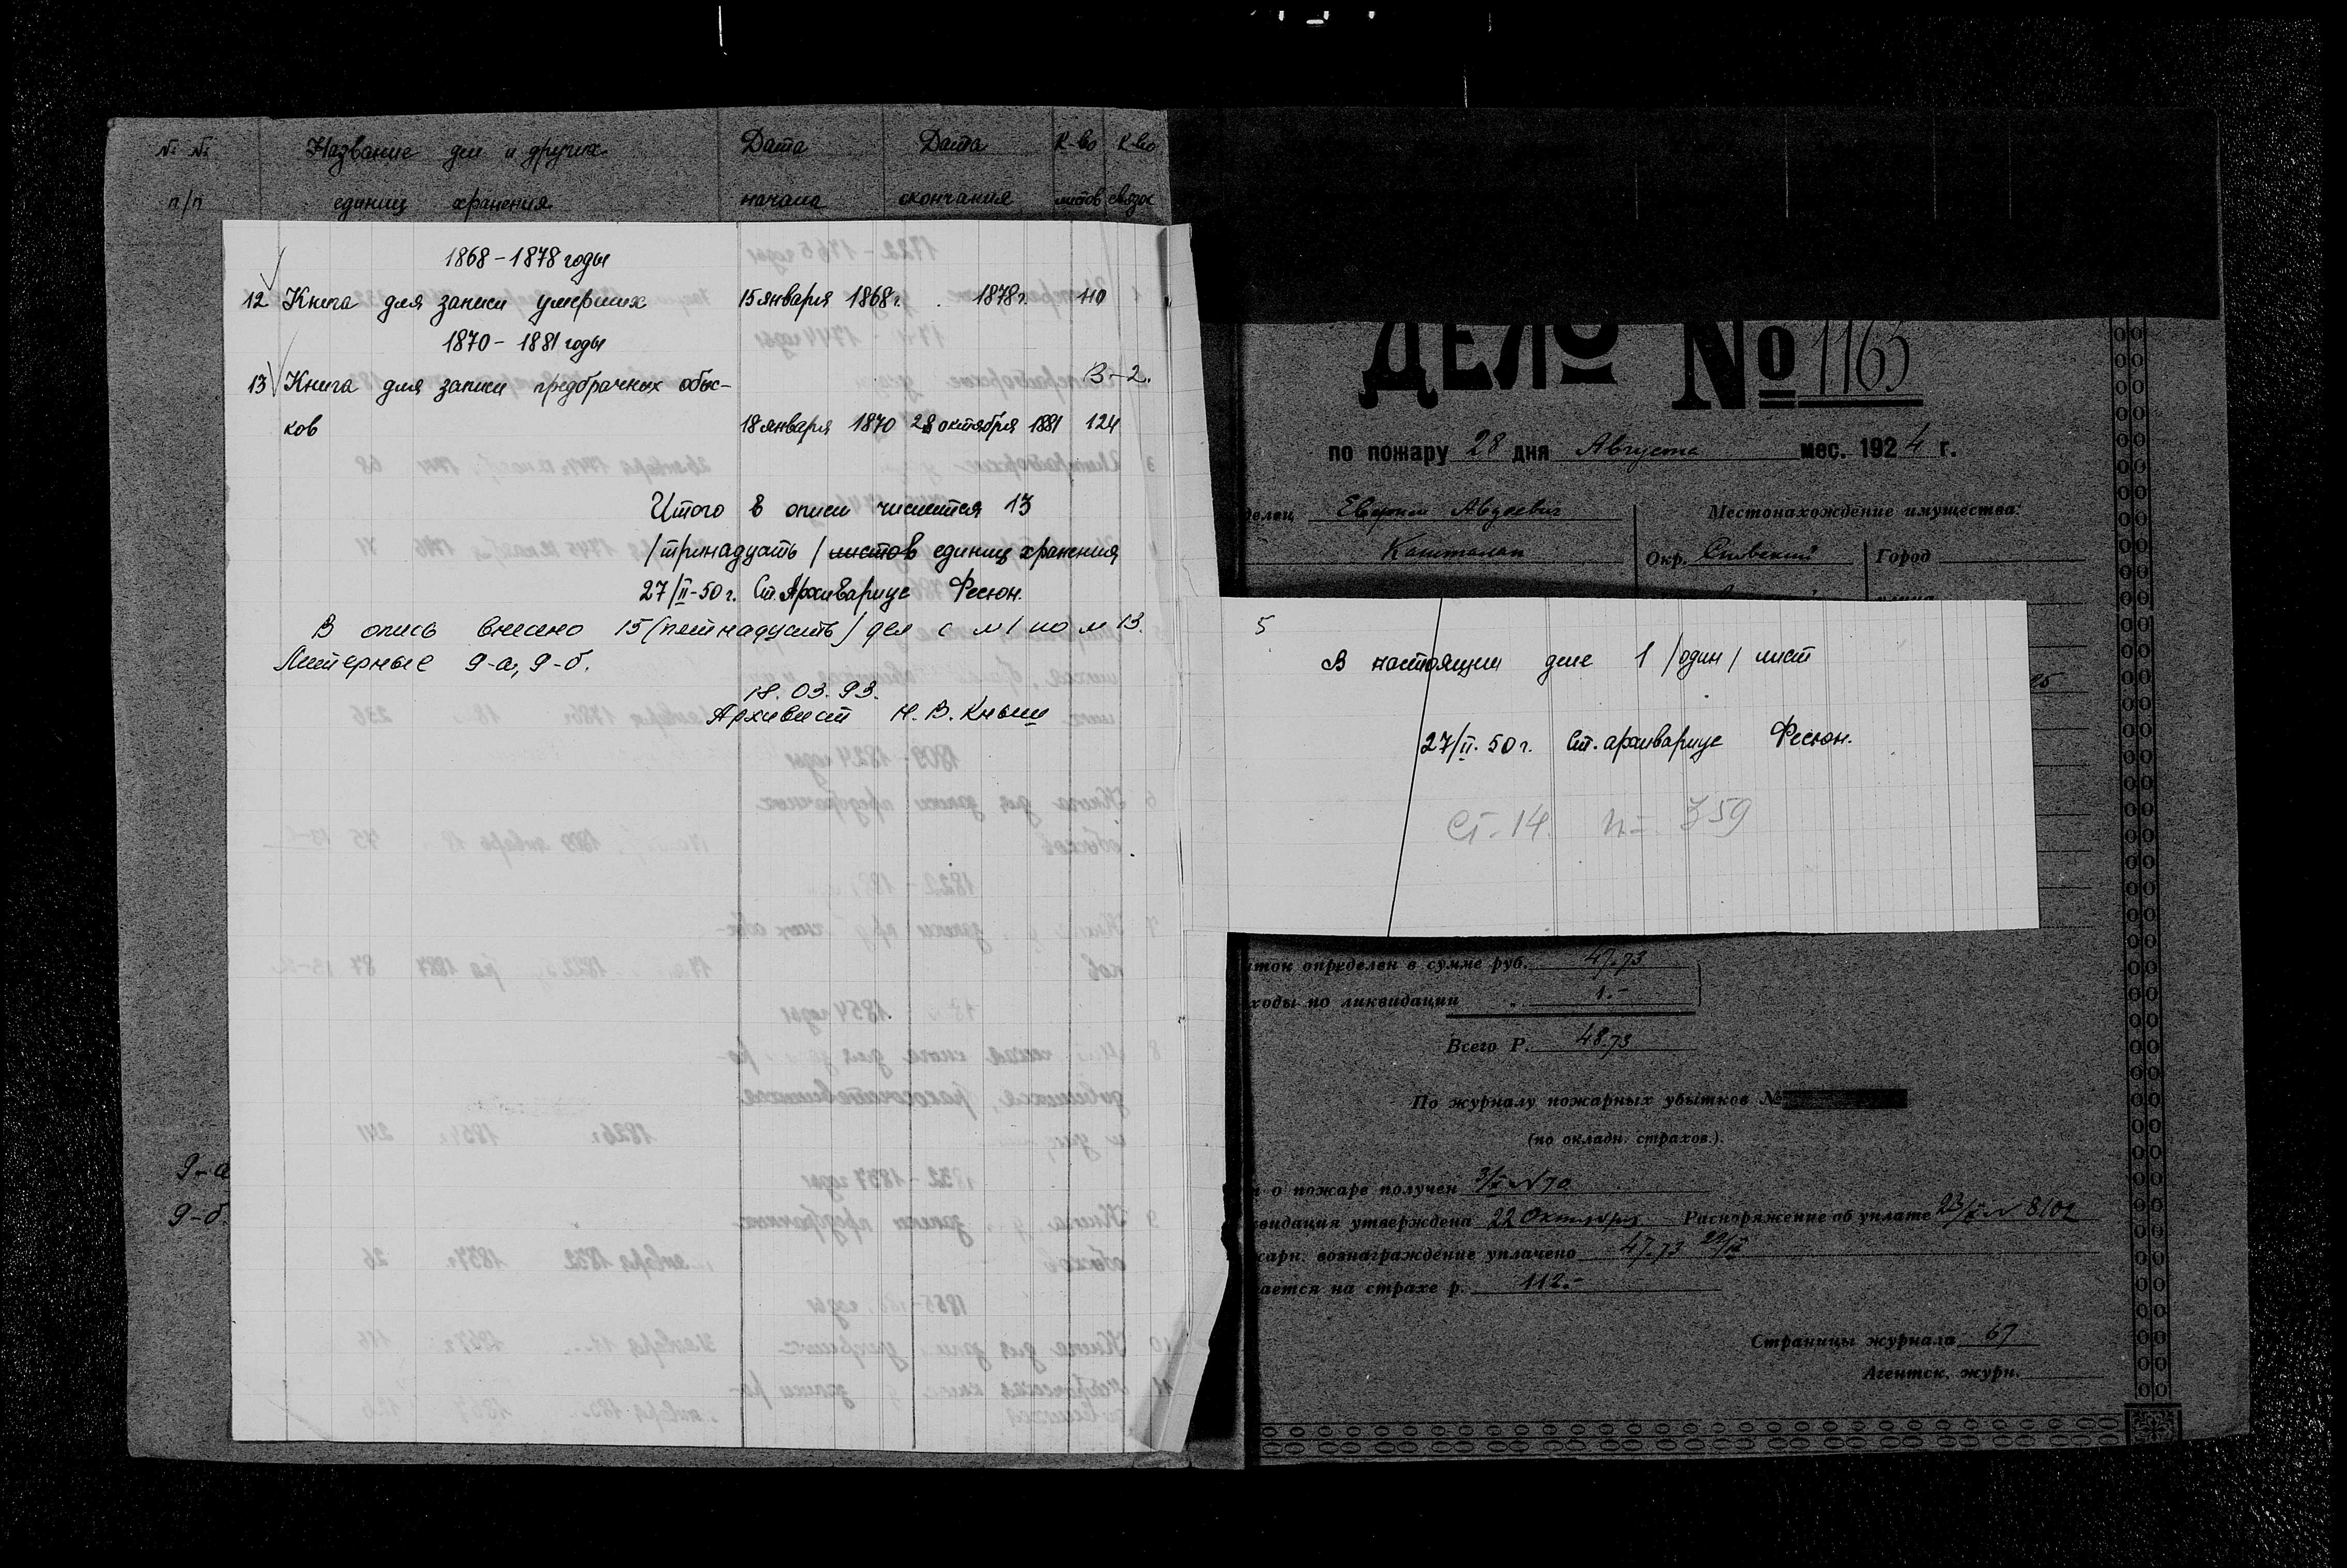 № №
п/п
Название дел и других
единиц хранения
Дата
начала
Дата
окончания
К-во
листов
К-во
связок
1868 – 1878 годы
12 Книга для записи умерших 15 января 1868 г. 1878 г. 110
1870 – 1881 годы
13 Книга для записи предбрачных обыс- В-2.
ков 18 января 1870 28 октября 1881 124
Итого в описи числится 13
/тринадцать/ листов единиц хранения
27/II-50 г. Ст. Архивариус Фесюн.
В опись внесено 15 (пятнадцать) дел с №1 по № 13.
Литерные 9-а, 9-б.
18. 03. 93.
Архивист Н. В. Кныш
9-а
9-б.
ДЕЛО № 1163
по пожару 28 дня Августа мес. 1924 г.
делец Авдеевич
Местонахождение имущества:
Кашталап Окр. Город
5
В настоящем деле 1 /один/ лист
27/II. 50 г. Ст. архивариус Фесюн.
Ст. 14 п= 359
определен в сумме руб. 47.73
ходы по ликвидации „ 1.-
Всего Р. 48.73
По журналу пожарных убытков №
(по окладн. страхов.).
о пожаре получен № 70
видация утверждена 22 Октября Распоряжение об уплате
жарн. вознаграждение уплачено 47.73
ается на страхе р. 112.-
Страницы журнала 67
Агентск. журн.